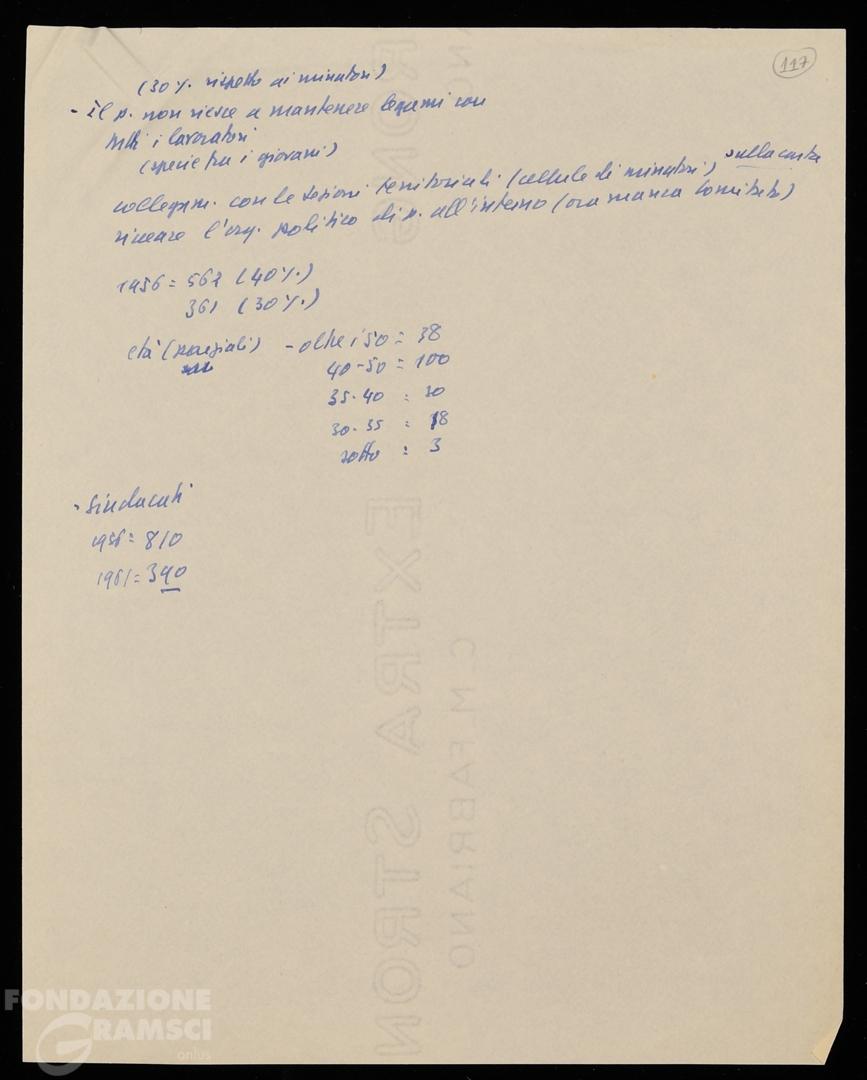 117
(30%. rispetto ai minatori)
- il p. non riesce a mantenere legami con
tutti i lavoratori
(specie tra i giovani)
collegam. con le sezioni territoriali (cellule di minatori) sulla carta
ricreare l'org. politico di p. all'interno (ora manca Comitato)
1956 = 562 (40%.)
361 (30%.)
età (parziali) - oltre i 50 = 38
40-50 = 100
35-40 = 30
30-35 = 18
sotto : 3
- Sindacati
1956 = 810
1961 = 390
EXTRA STRON
C. M. FABRIANO
FONDAZIONE
GRAMSCI
onlus